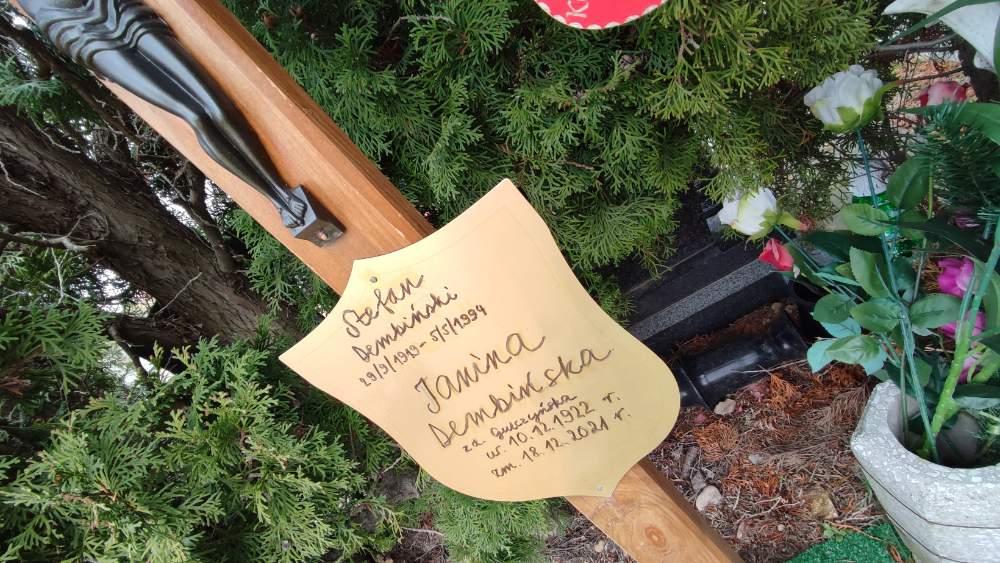 Stefan
Dembiński
29/9/1919-5/5/1994
Janina
Dembińska
z d. Gulczyńska
ur. 10.12.1922 r.
zm. 18.12.2021 r.